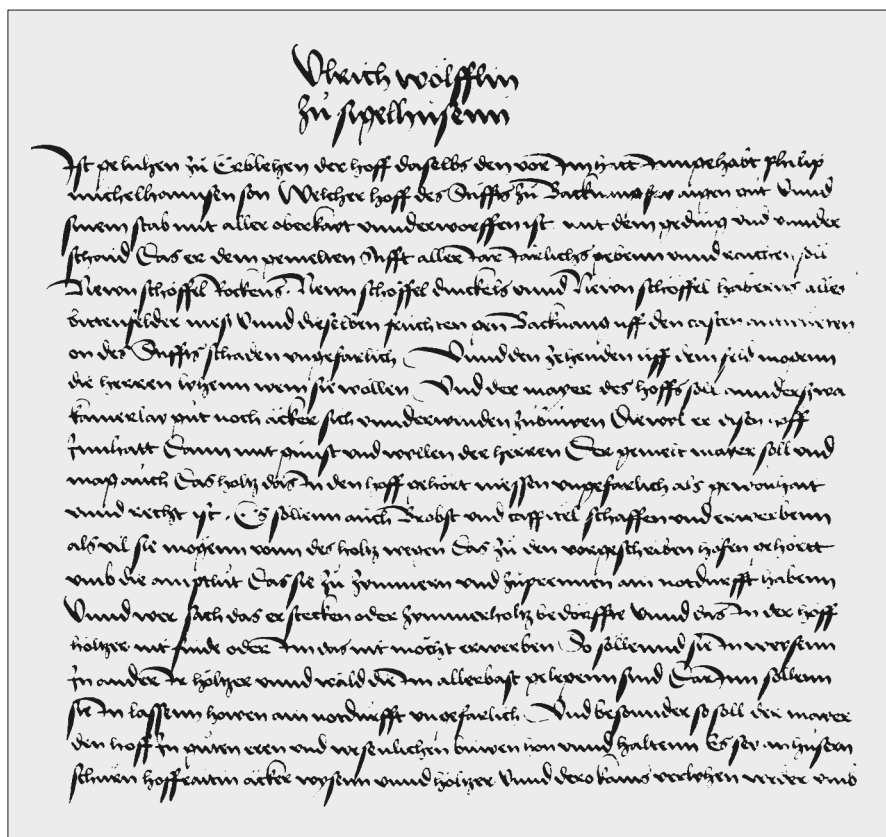 Ulrich wölfflin
zů sigelhusenn
Ist gelihen zů Erblehen der hoff daselbs den vor Im hatt Inngehabt philip
michelhannsen son Welcher hoff des Stiffts zů Backnang fry aigen ist Unnd
sinem stab mit aller oberkayt unnderworffen ist mit dem geding und unnder
schaid Das er dem gemelten Stifft aller Jar Järlichs gebenn unnd raichen sol
Newn schöffel Rockens Newn schöffel dinckels unnd Newn schöffel haberns alles
bittenfelder mess Unnd dieselben fruchten gen Backnang uff den casten antwurten
on des Stiffts schaden ungefarlich Unnd den zehenden uff dem feld mogenn
die herren lyhenn wem sie wollen Und der mayer des hoffs soll annderszwa
kainerlay gut noch äcker sich unnderwinden zůbuwen Diewyl er disen hoff
Innhatt Dann mit gunst und willen der herren Der gemelt mayer soll und
mag auch Das holtz das In den hoff gehört niessen ungefarlich als gewonhait
unnd recht ist Es sollenn auch Brobst und cappittel schaffen und erwerbenn
als vil sie mogenn vonn des holtz wegen Das zů den vorgeschriben höfen gehörtt
umb die amptlüt Das sie zů zymmern und zůprennen ain notdurfft habenn
Unnd wer sach das er stecken oder zymmerholtz bedörffte Unnd das In der hoff
höltzer nit finde oder Im das nit möcht erwerben So sollennd sie In wysenn
In ander Ir höltzer unnd wäld die Im allerbast gelegenn sind Dar Inn sollenn
sie In lassenn howen ain notdurfft ungefarlich Und besonder so soll der mayer
den hoff In guten eren und wesenlichen buwen hon unnd haltenn Es sey an husern
schuren hoffraitin äcker wysenn unnd höltzer Unnd dero kains verlyhen weder umb